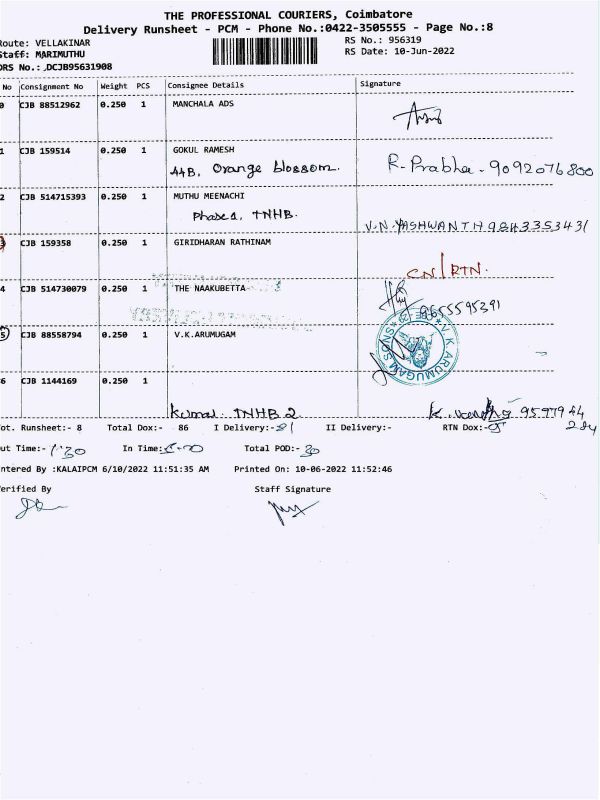 THE PROFESSIONAL COURIERS, Coimbatore
Delivery Runsheet - PCM - Phone No.:0422-3505555 - Page No.:8
Route: VELLAKINAR
RS No.: 956319
Staff: MARIMUTHU
RS Date: 10-Jun-2022
DRS No.: DCJB95631908
No Consignment No Weight PCS Consignee Details Signature
0 CJB 88512962 0.250 1 MANCHALA ADS
1 CJB 159514 0.250 1 GOKUL RAMESH
A4B, Orange blossom. R. Prabha - 9092076800
2 CJB 514715393 0.250 1 MUTHU MEENACHI
Phase 1, TNHB. V.N. YASHWANTH 9843353431
3 CJB 159358 0.250 1 GIRIDHARAN RATHINAM
CN/RTN.
4 CJB 514730079 0.250 1 THE NAAKUBETTA
9655595391
5 CJB 88558794 0.250 1 V.K.ARUMUGAM
V.K. ARUMUGAM SONS
6 CJB 1144169 0.250 1
Kumar. TNHB 2
Tot. Runsheet:- 8 Total Dox:- 86 I Delivery:- 81 II Delivery:- RTN Dox:- 5
Out Time:- 1:30 In Time:- Total POD:- 30
Entered By :KALAIPCM 6/10/2022 11:51:35 AM Printed On: 10-06-2022 11:52:46
Verified By Staff Signature